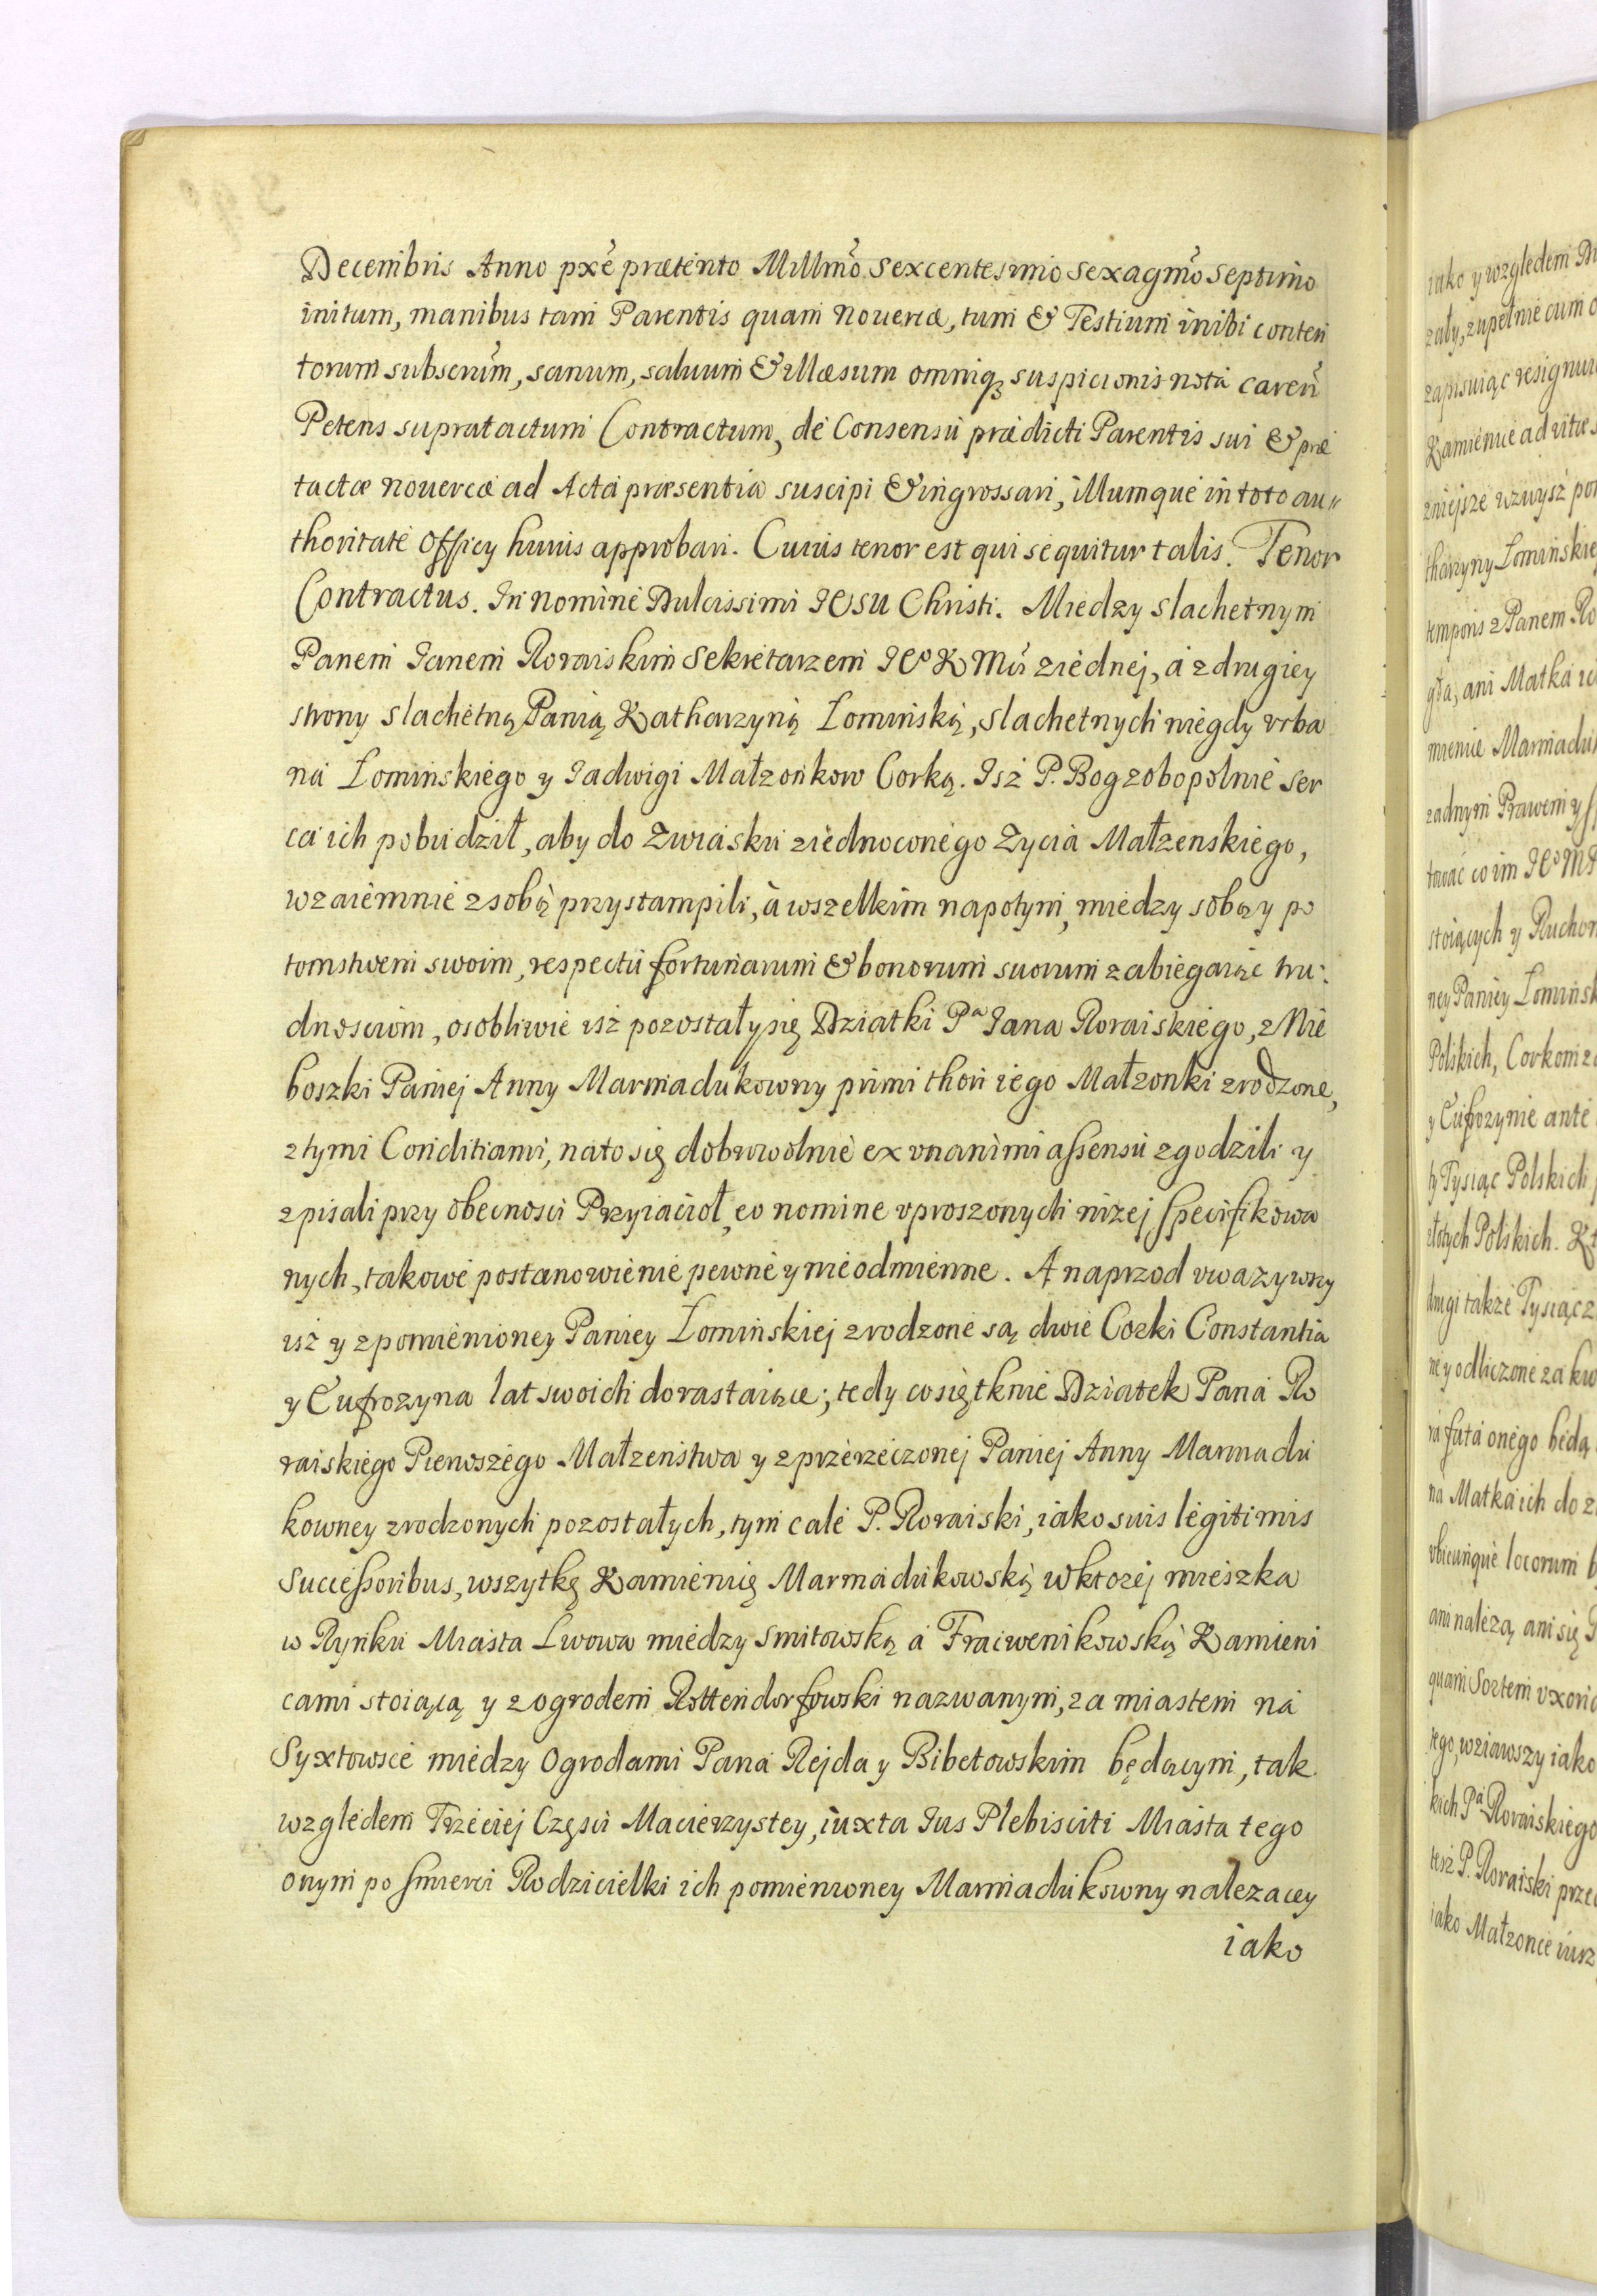 Decembris Anno pxẽ præterito Millmõ sexcentesimo sexagmõ septimo
initum, manibus tam Parentis quam Nouercæ, tum & Testium inibi conten
torum subscrũm, sanum, saluum & illæsum omniq₃ suspicionis nota careñ
Petens supratactum Contractum, de Consensu prædicti Parentis sui & præ
tactæ nouercæ ad Acta præsentia suscipi & ingrossari, illumque in toto au„
thoritate Officy huius approbari. Cuius tenor est qui sequitur talis. Tenor
Contractus. In nomine Dulcissimi IESU Christi. Miedzy slachetnym
Panem Ianem Roraiskim Sekretarzem IEº K Mči ziednej, a z drugiey
strony slachetną Panią Katharzyną Łomińską, slachetnych niegdy vrba
na Łomińskiego y Iadwigi Małzonkow Corką. Isz P. Bog zobopolnie ser
ca ich pobudził, aby do Zwiasku ziednoconego Zycia Małzenskiego,
wzaiemnie z sobą przystampili, a wszelkim napotym, miedzy sobą y po
tomstwem swoim, respectu fortunarum & bonorum suorum zabiegaiąc tru:
dnosciom, osobliwie isz pozostały się Dziatki Pª Iana Roraiskiego, z Nie
boszki Paniej Anny Marmadukowny primi thori iego Małzonki zrodzone,
z tymi Conditiami, na to się dobrowolnie ex vnanimi assensu zgodzili y
zpisali przy obecnosci Przyiacioł, eo nomine vproszonych nizej specifikowa
nych, takowe postanowienie pewne y nieodmienne. A naprzod vwazywszy
isz y z pomienioney Paniey Łomińskiej zrodzone są dwie Corki Constantia
y Eufrozyna lat swoich dorastaiące; tedy co się tknie Dziatek Pana Ro
raiskiego Pierwszego Małzeństwa y z przerzeczonej Paniej Anny Marmadu
kowney zrodzonych pozostałych, tym cale P. Roraiski, iako suis legitimis
Successoribus, wszytkę Kamienię Marmadukowską w ktorej mieszka
w Rynku Miasta Lwowa miedzy Smitowską a Fraiwenikowską Kamieni
cami stoiącą y z ogrodem Rottendorfowski nazwanym, za miastem na
Syxtowsce miedzy Ogrodami Pana Rejda y Bibetowskim będącym, tak
wzgledem Trzeciej Częsci Macierzystey, iuxta Ius Plebisciti Miasta tego
onym po smierci Rodzicielki ich pomienioney Marmadukowny nalezacey
iako
iako y wzgledem
zały, zupełnie cum
zapisuiąc
Kamienice ad vitæ
zniejsze wzwysz
tharzyny Łominskie
temporis z Panem Ro
ani Matka
mienie Marmadu
zadnym Prawem y
co im IEº
stoiących y Ruchom
ney Paniey Łomińsk
Polskich, Corkom
y Eufrozynie ante
Tysiąc Polskich
złotych Polskich.
drugi takze Tysiąc
ne y odliczone za
fata onego będą
na Matka ich do
vbicunque locorum
ani nalezą, ani się
quam Sortem vxori
tego, wziawszy iako
kich Pª Roraiskiego
tesz P. Roraiski
iako Małzonce iusz